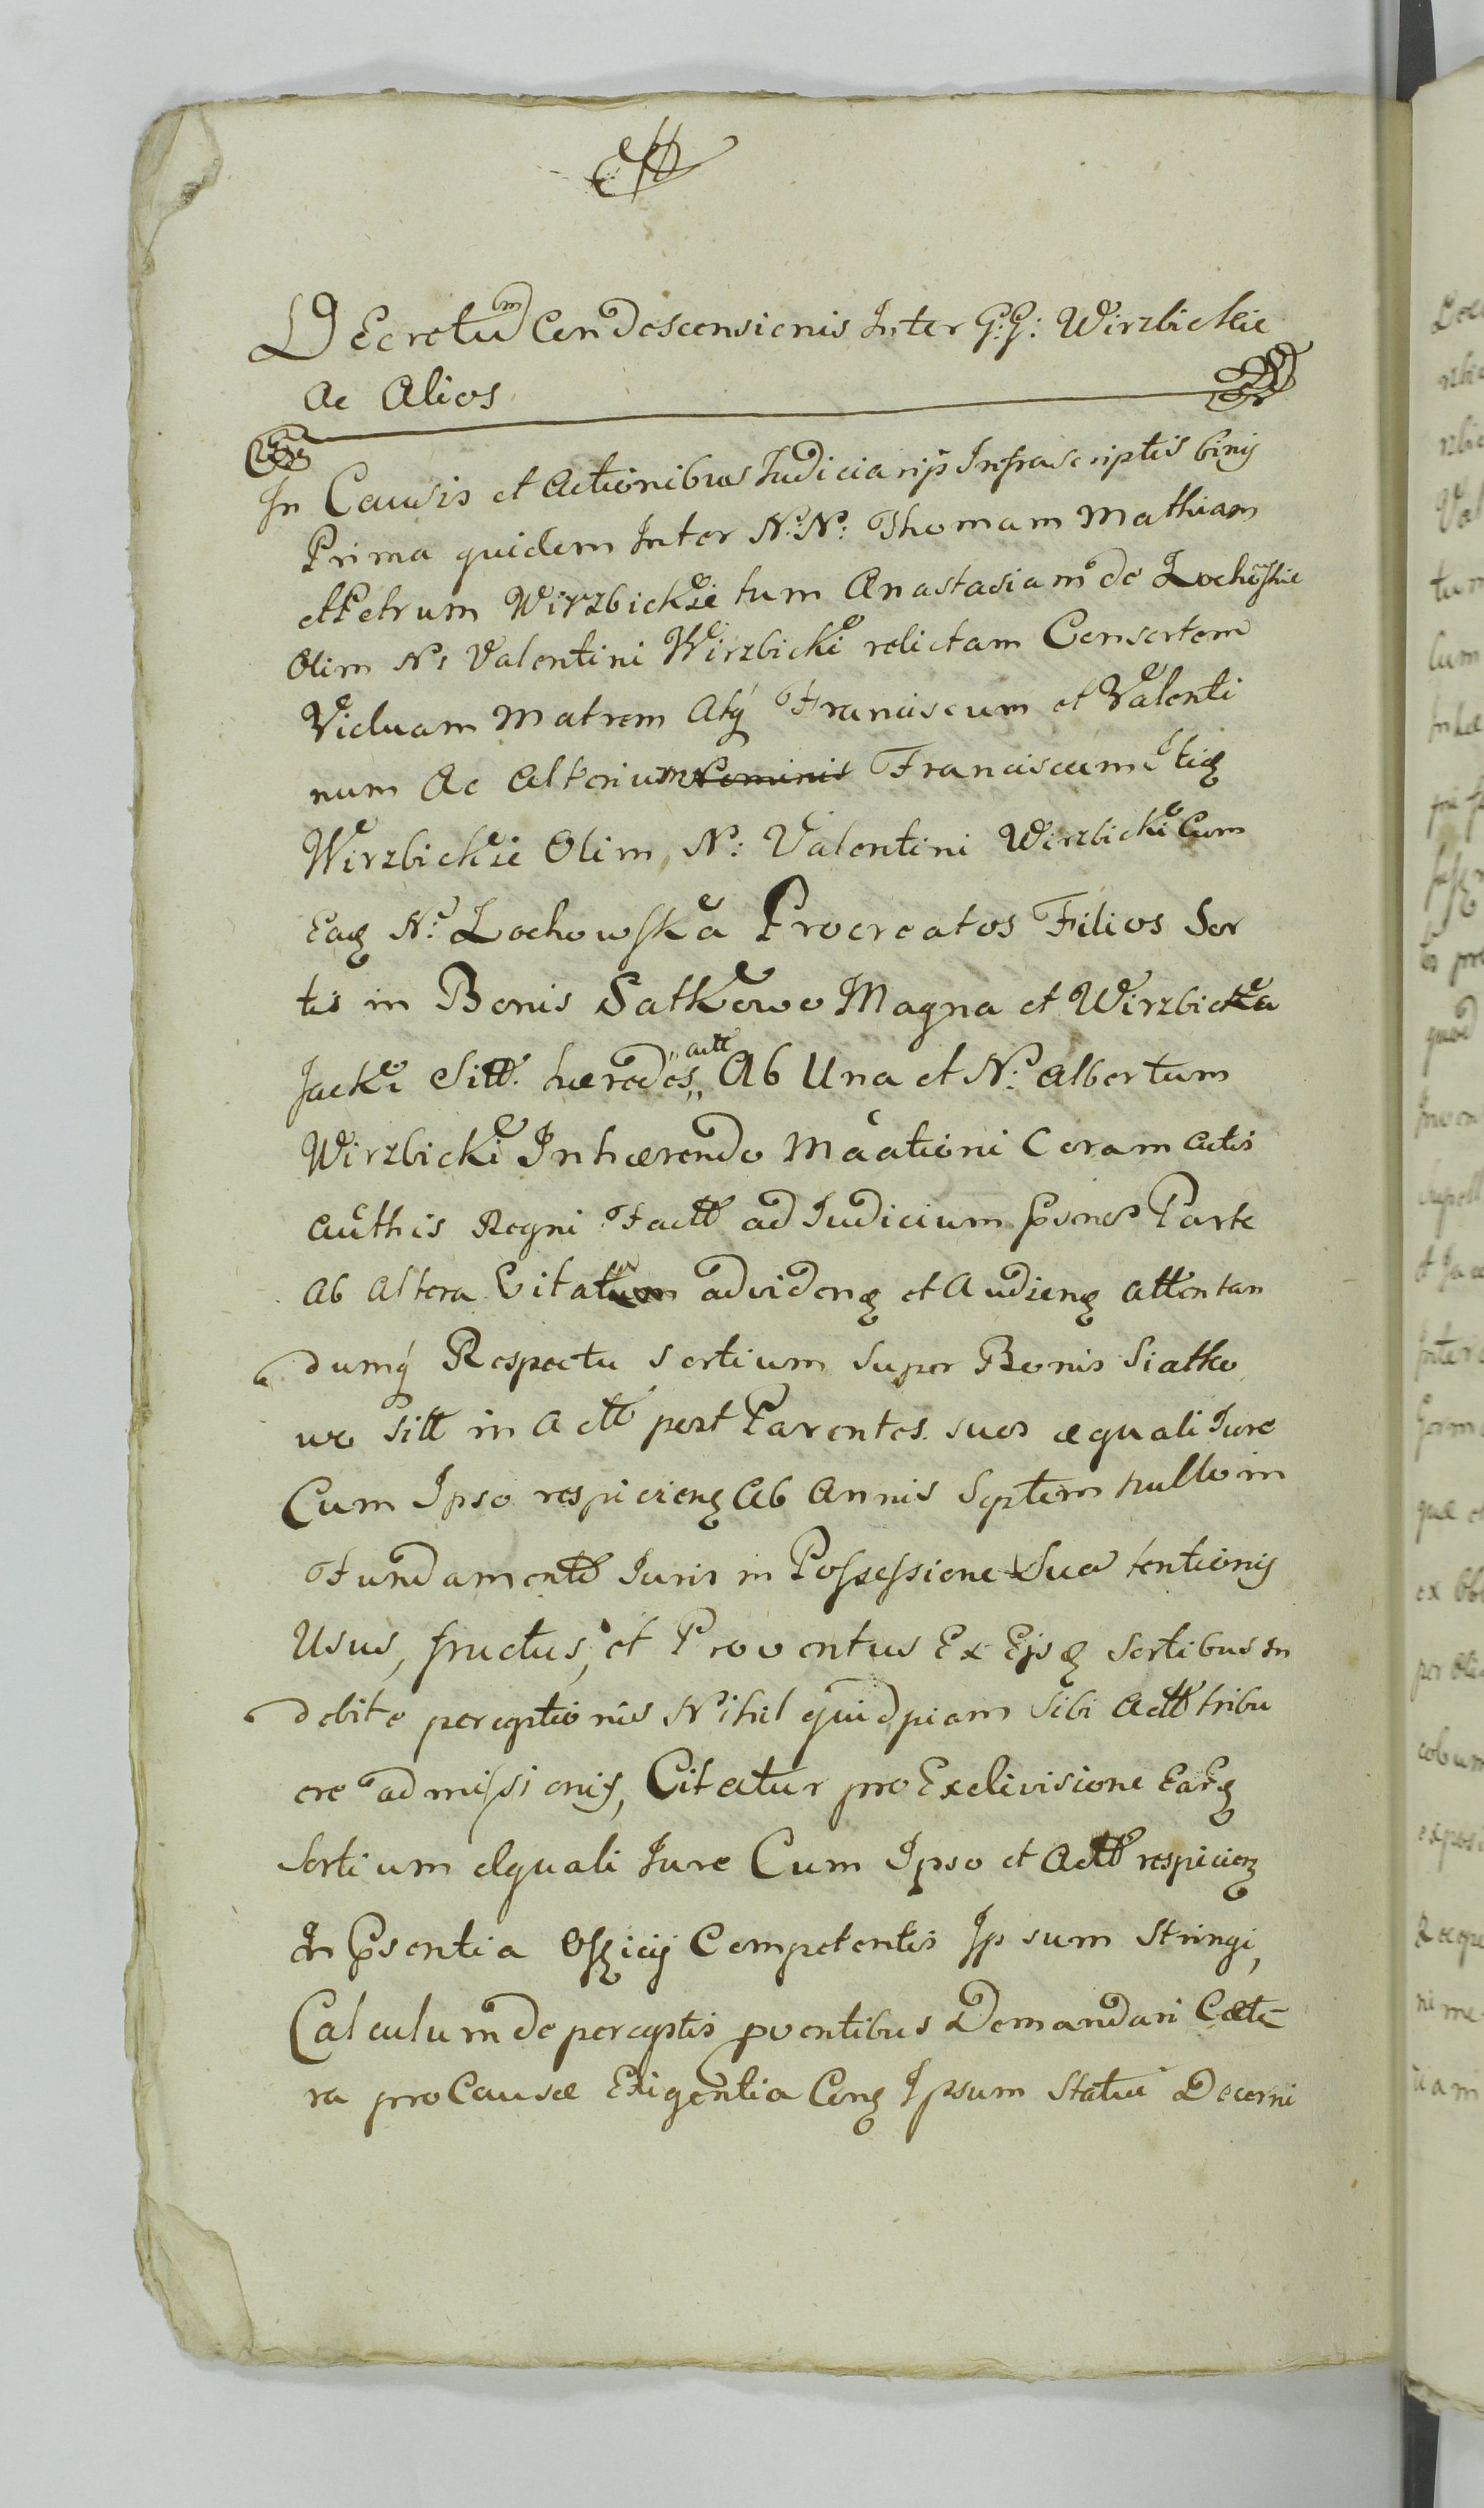 DEcretum Condescensionis Inter G:G: Wirzbickie
Ac Alios
In Causis et Actionibus Judiciarijs Infrascriptis binis
Prima quidem Inter N:N: Thomam Mathiam
et Petrum Wirzbickie tum Anastasiam de
Olim N: Valentini Wirzbicki relictam Consortem
Viduam Matrem Atq Franciscum et Valenti
num Ac Alterium Nominis Franciscum
Wirzbickie Olim N: Valentini Wirzbicki Cum
Eadem N: Lochowska Procreatos Filios Sor
tis in Bonis Satkowo Magna et Wirzbicka
Jacki Sitt. hæredes Actt Ab Una et N: Albertum
Wirzbicki Inhærendo Maationi Coram Actis
Authis Regni Factt ad Judicium Psens Parte
Ab Altera Citatum ad videndum et Audiendum Atten tan
dumq Respectu Sortium Super Bonis Siatko
wo Sitt in Actt post Parentes suos æquali Jure
Cum Ipso respicien Ab Annis Septem nullo in
Fundamentto Juris in Possessione Sua tentionis
Usus, fructus, et Proventus Ex Ejsdem Sortibus in
debite perceptionis Nihil quidpiam Sibi Actt tribu
ere admissionis, Citatur pro Exdivisione Earundem
Sortium Æquali Jure Cum Ipso et Actt respicien
In Psentia Officij Competentis Ipsum Stringi,
Calculum de perceptis pventibus Demandari Cæte
ra pro Causæ Exigentia Contra Ipsum Statui Decerni